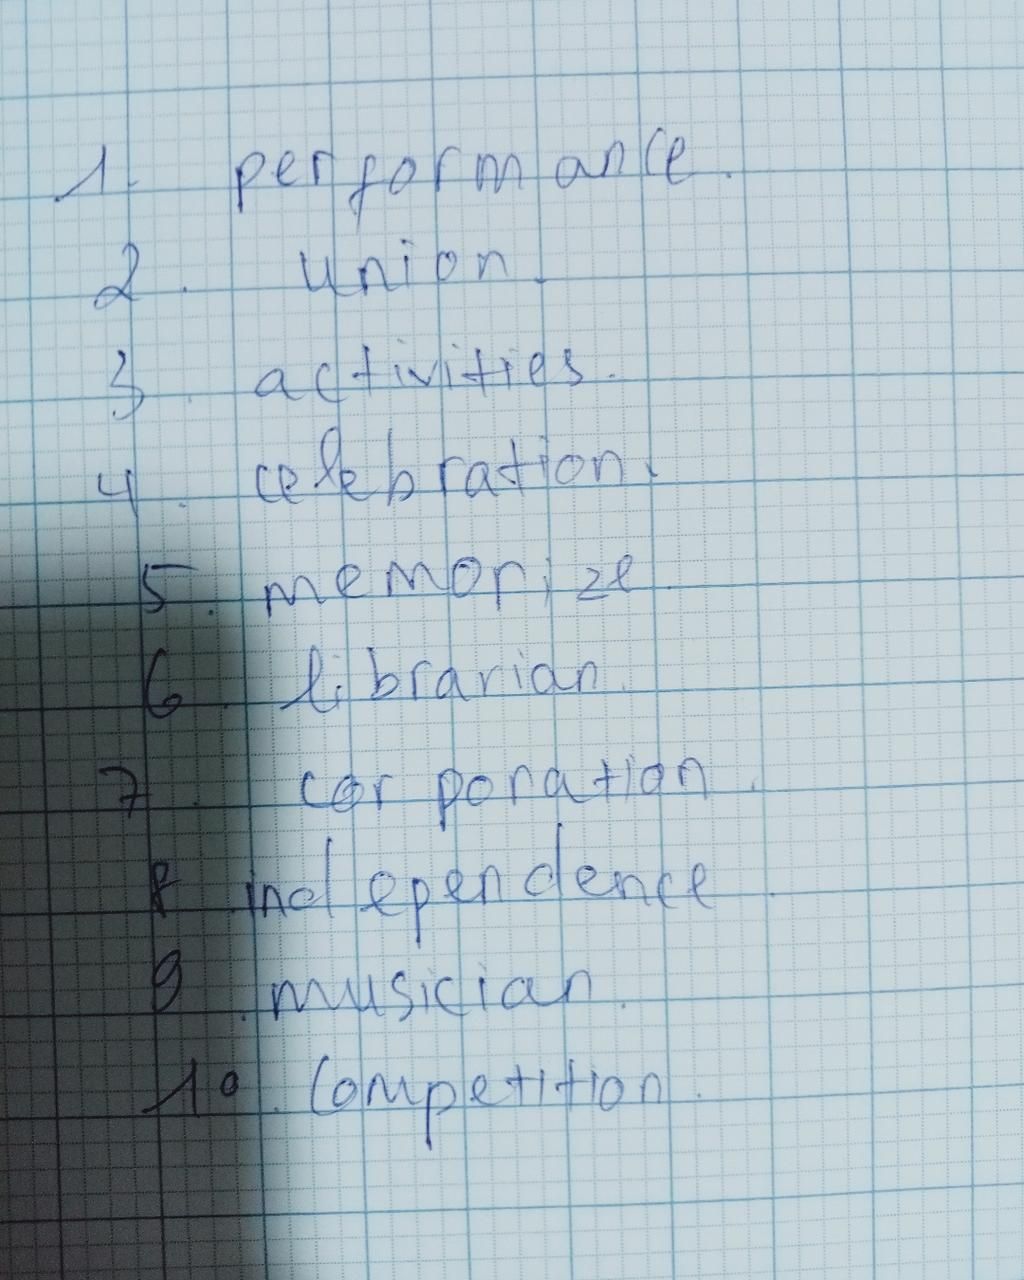 1. performance.
2. union.
3. activities.
4. celebration.
5. memorize
6. librarian.
7. corporation.
8 independence.
9. musician.
10. Competition.